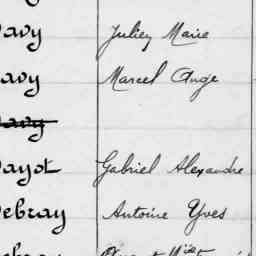 avy Julien Marie
avy Marcel Ange
avy
ayot Gabriel Alexandre
ebray Antoine Yves